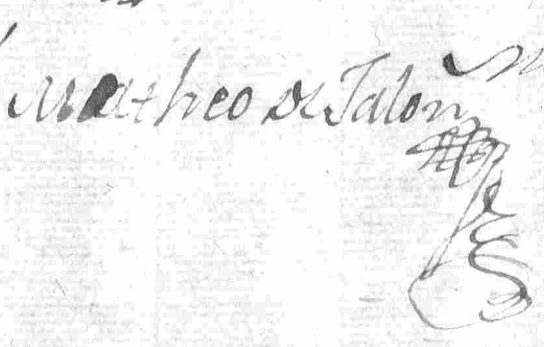 Matheo de Talon